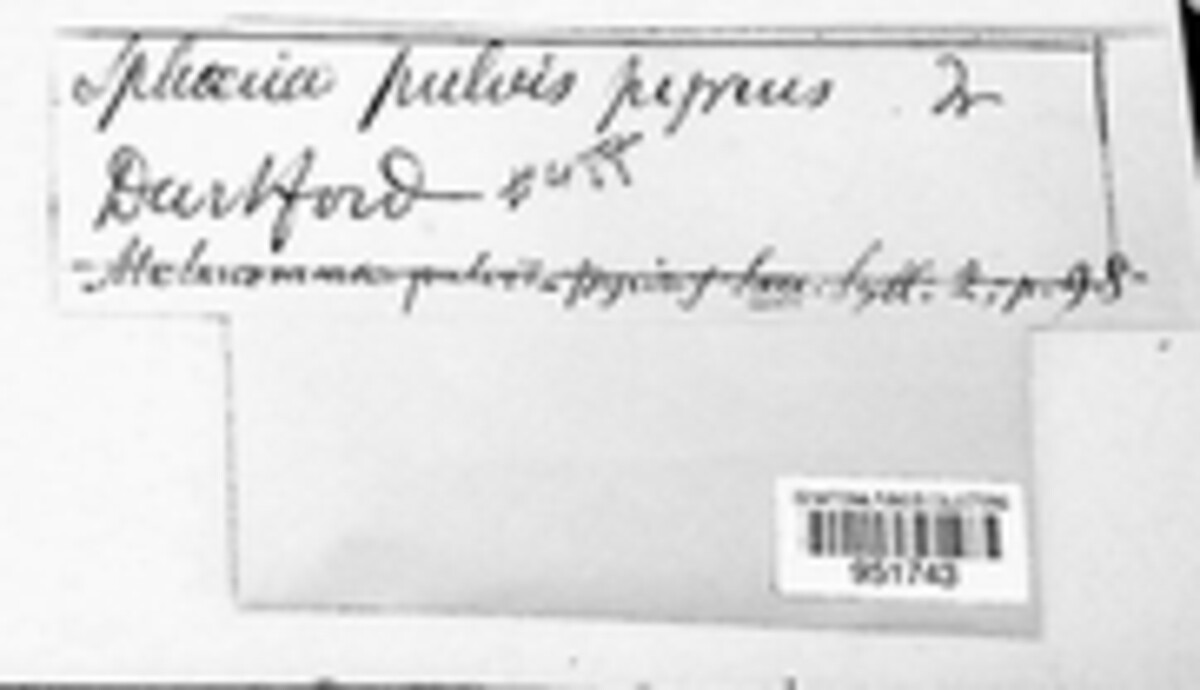 Sphæria pulvis pyrius
Dartford
Melanomma pulvis pyrius Sacc. Syll. 2, p. 98
951743